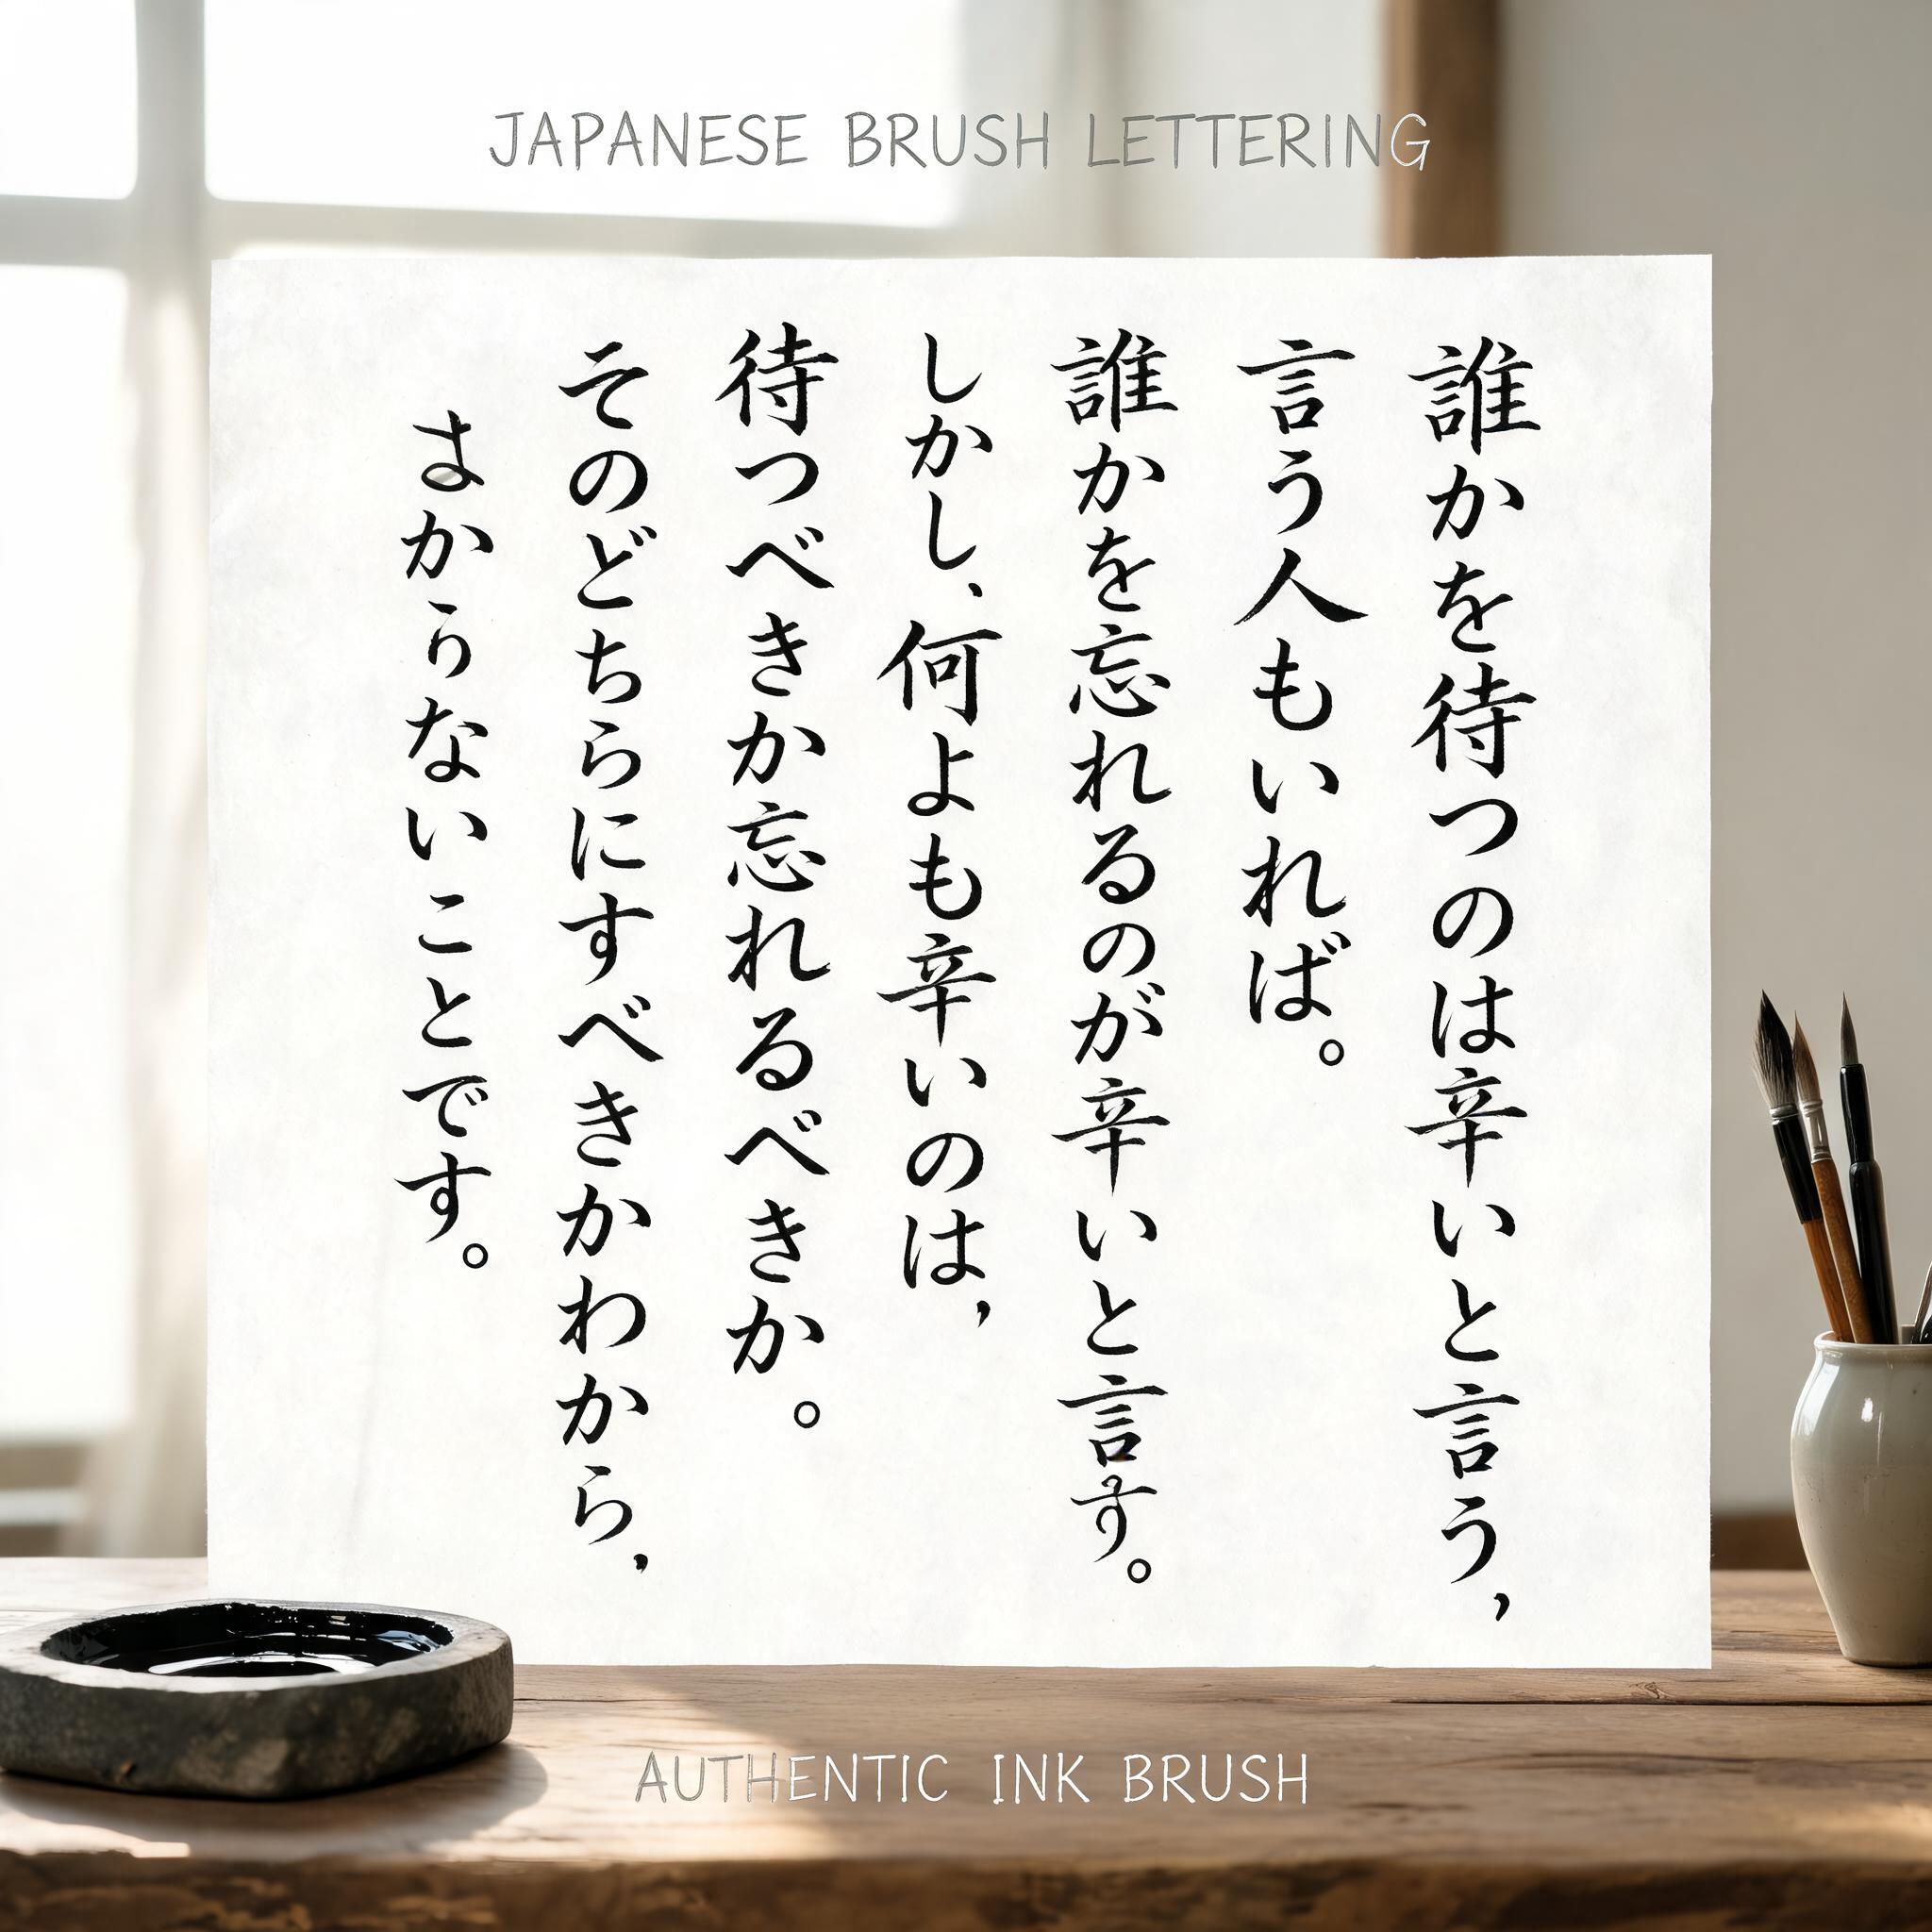 JAPANESE BRUSH LETTERING
誰かを待つのは辛いと言う,
言う人もいれば。
誰かを忘れるのが辛いと言す。
しかし、何よも辛いのは,
待つべきか忘れるべきか。
そのどちらにすべきかわから,
まかうないことです。
AUTHENTIC INK BRUSH